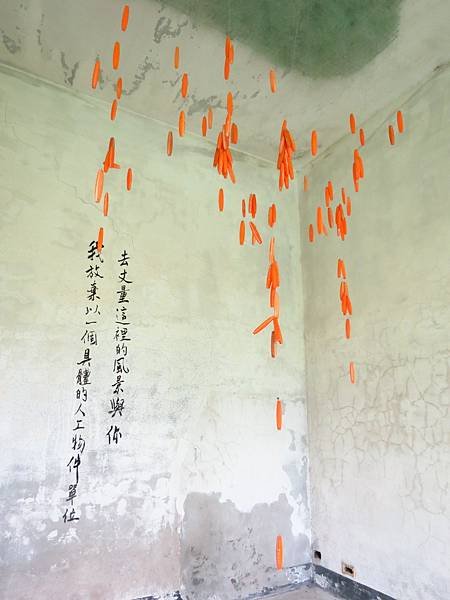 我放棄以一個具體的人工物件單位
去丈量這裡的風景與你